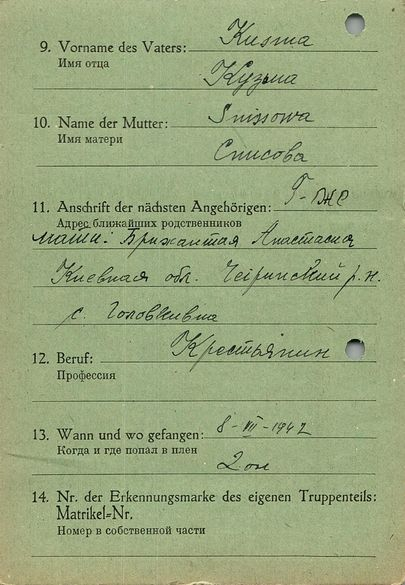 9. Vorname des Vaters: Kusma
Имя отца
Кузма
10. Name der Mutter: Snissowa
Имя матери
Списова
11. Anschrift der nächsten Angehörigen:
Адрес ближайших родственников
Анастасия
Киевская обл. р.н.
с. Головкивна
12. Beruf: Крестьянин
Профессия
13. Wann und wo gefangen: 8-VII-1942
Когда и где попал в плен
14. Nr. der Erkennungsmarke des eigenen Truppenteils:
Matrikel=Nr.
Номер в собственной части